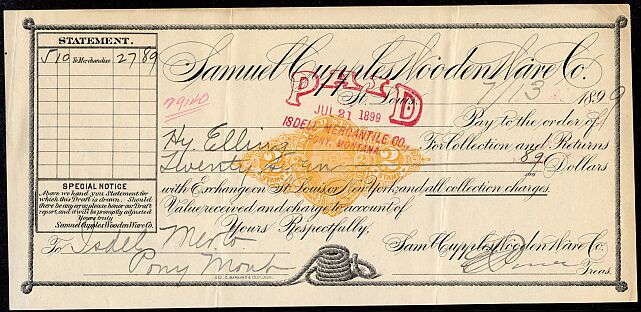 STATEMENT.
5/10 To Merchandise 27 89
SPECIAL NOTICE
Above we hand you Statement for
which this Draft is drawn. Should
there be any error, please honor our Draft
report, and it will be promptly adjusted
Yours truly
Samuel Cupples Wooden Ware Co.
Samuel Cupples Wooden Ware Co.
St. Louis, 7/13 1899
PAID
JUL 21 1899
ISDELL MERCANTILE CO.
PONY, MONTANA.
Pay to the order of
Hy. Elling For Collection and Returns
Twenty Seven 89/100 Dollars
with Exchange on St. Louis or New York, and all collection charges.
Value received and charge to account of
Yours Respectfully,
To Isdell Merc Saml Cupples Wooden Ware Co.
Pony Mont
Treas.